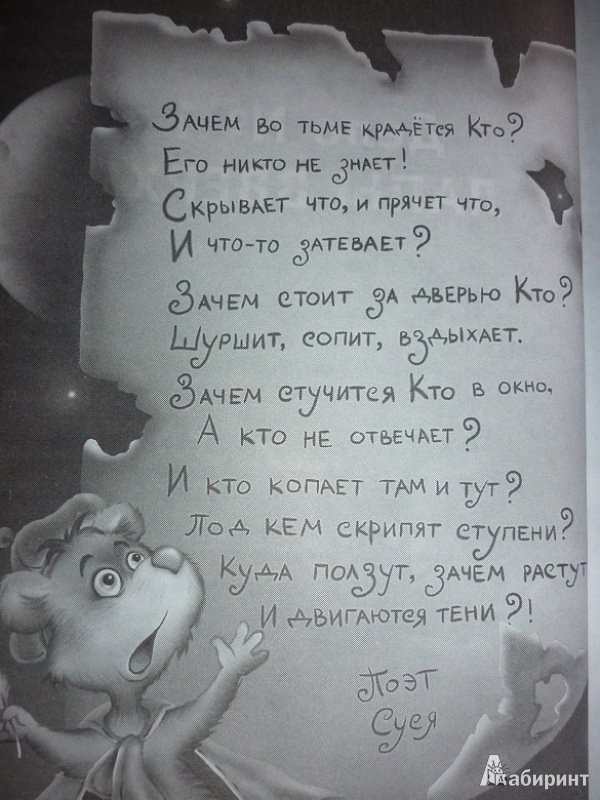 Зачем во тьме крадётся Кто?
Его никто не знает!
Скрывает что, и прячет что,
И что-то затевает?
Зачем стоит за дверью Кто?
Шуршит, сопит, вздыхает.
Зачем стучится Кто в окно,
А кто не отвечает?
И кто копает там и тут?
Под кем скрипят ступени?
Куда ползут, зачем растут
И двигаются тени?!
Поэт
Суся
Лабиринт